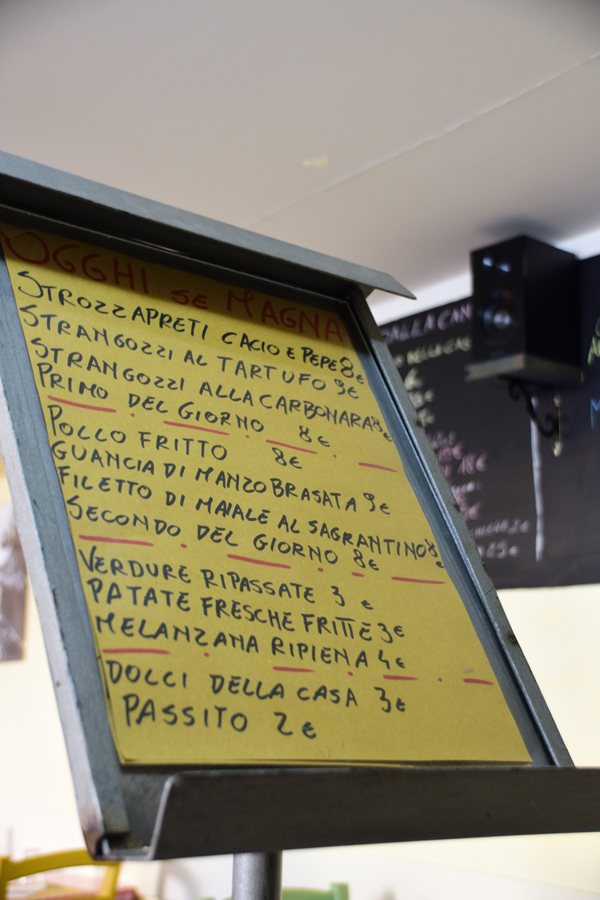 OGGHI SE MAGNA
STROZZAPRETI CACIO E PEPE 8€
STRANGOZZI AL TARTUFO 9€
STRANGOZZI ALLA CARBONARA 8€
PRIMO DEL GIORNO 8€
POLLO FRITTO 8€
GUANCIA DI MANZO BRASATA 9€
FILETTO DI MAIALE AL SAGRANTINO 8€
SECONDO DEL GIORNO 8€
VERDURE RIPASSATE 3 €
PATATE FRESCHE FRITTE 3€
MELANZANA RIPIENA 4€
DOLCI DELLA CASA 3€
PASSITO 2€